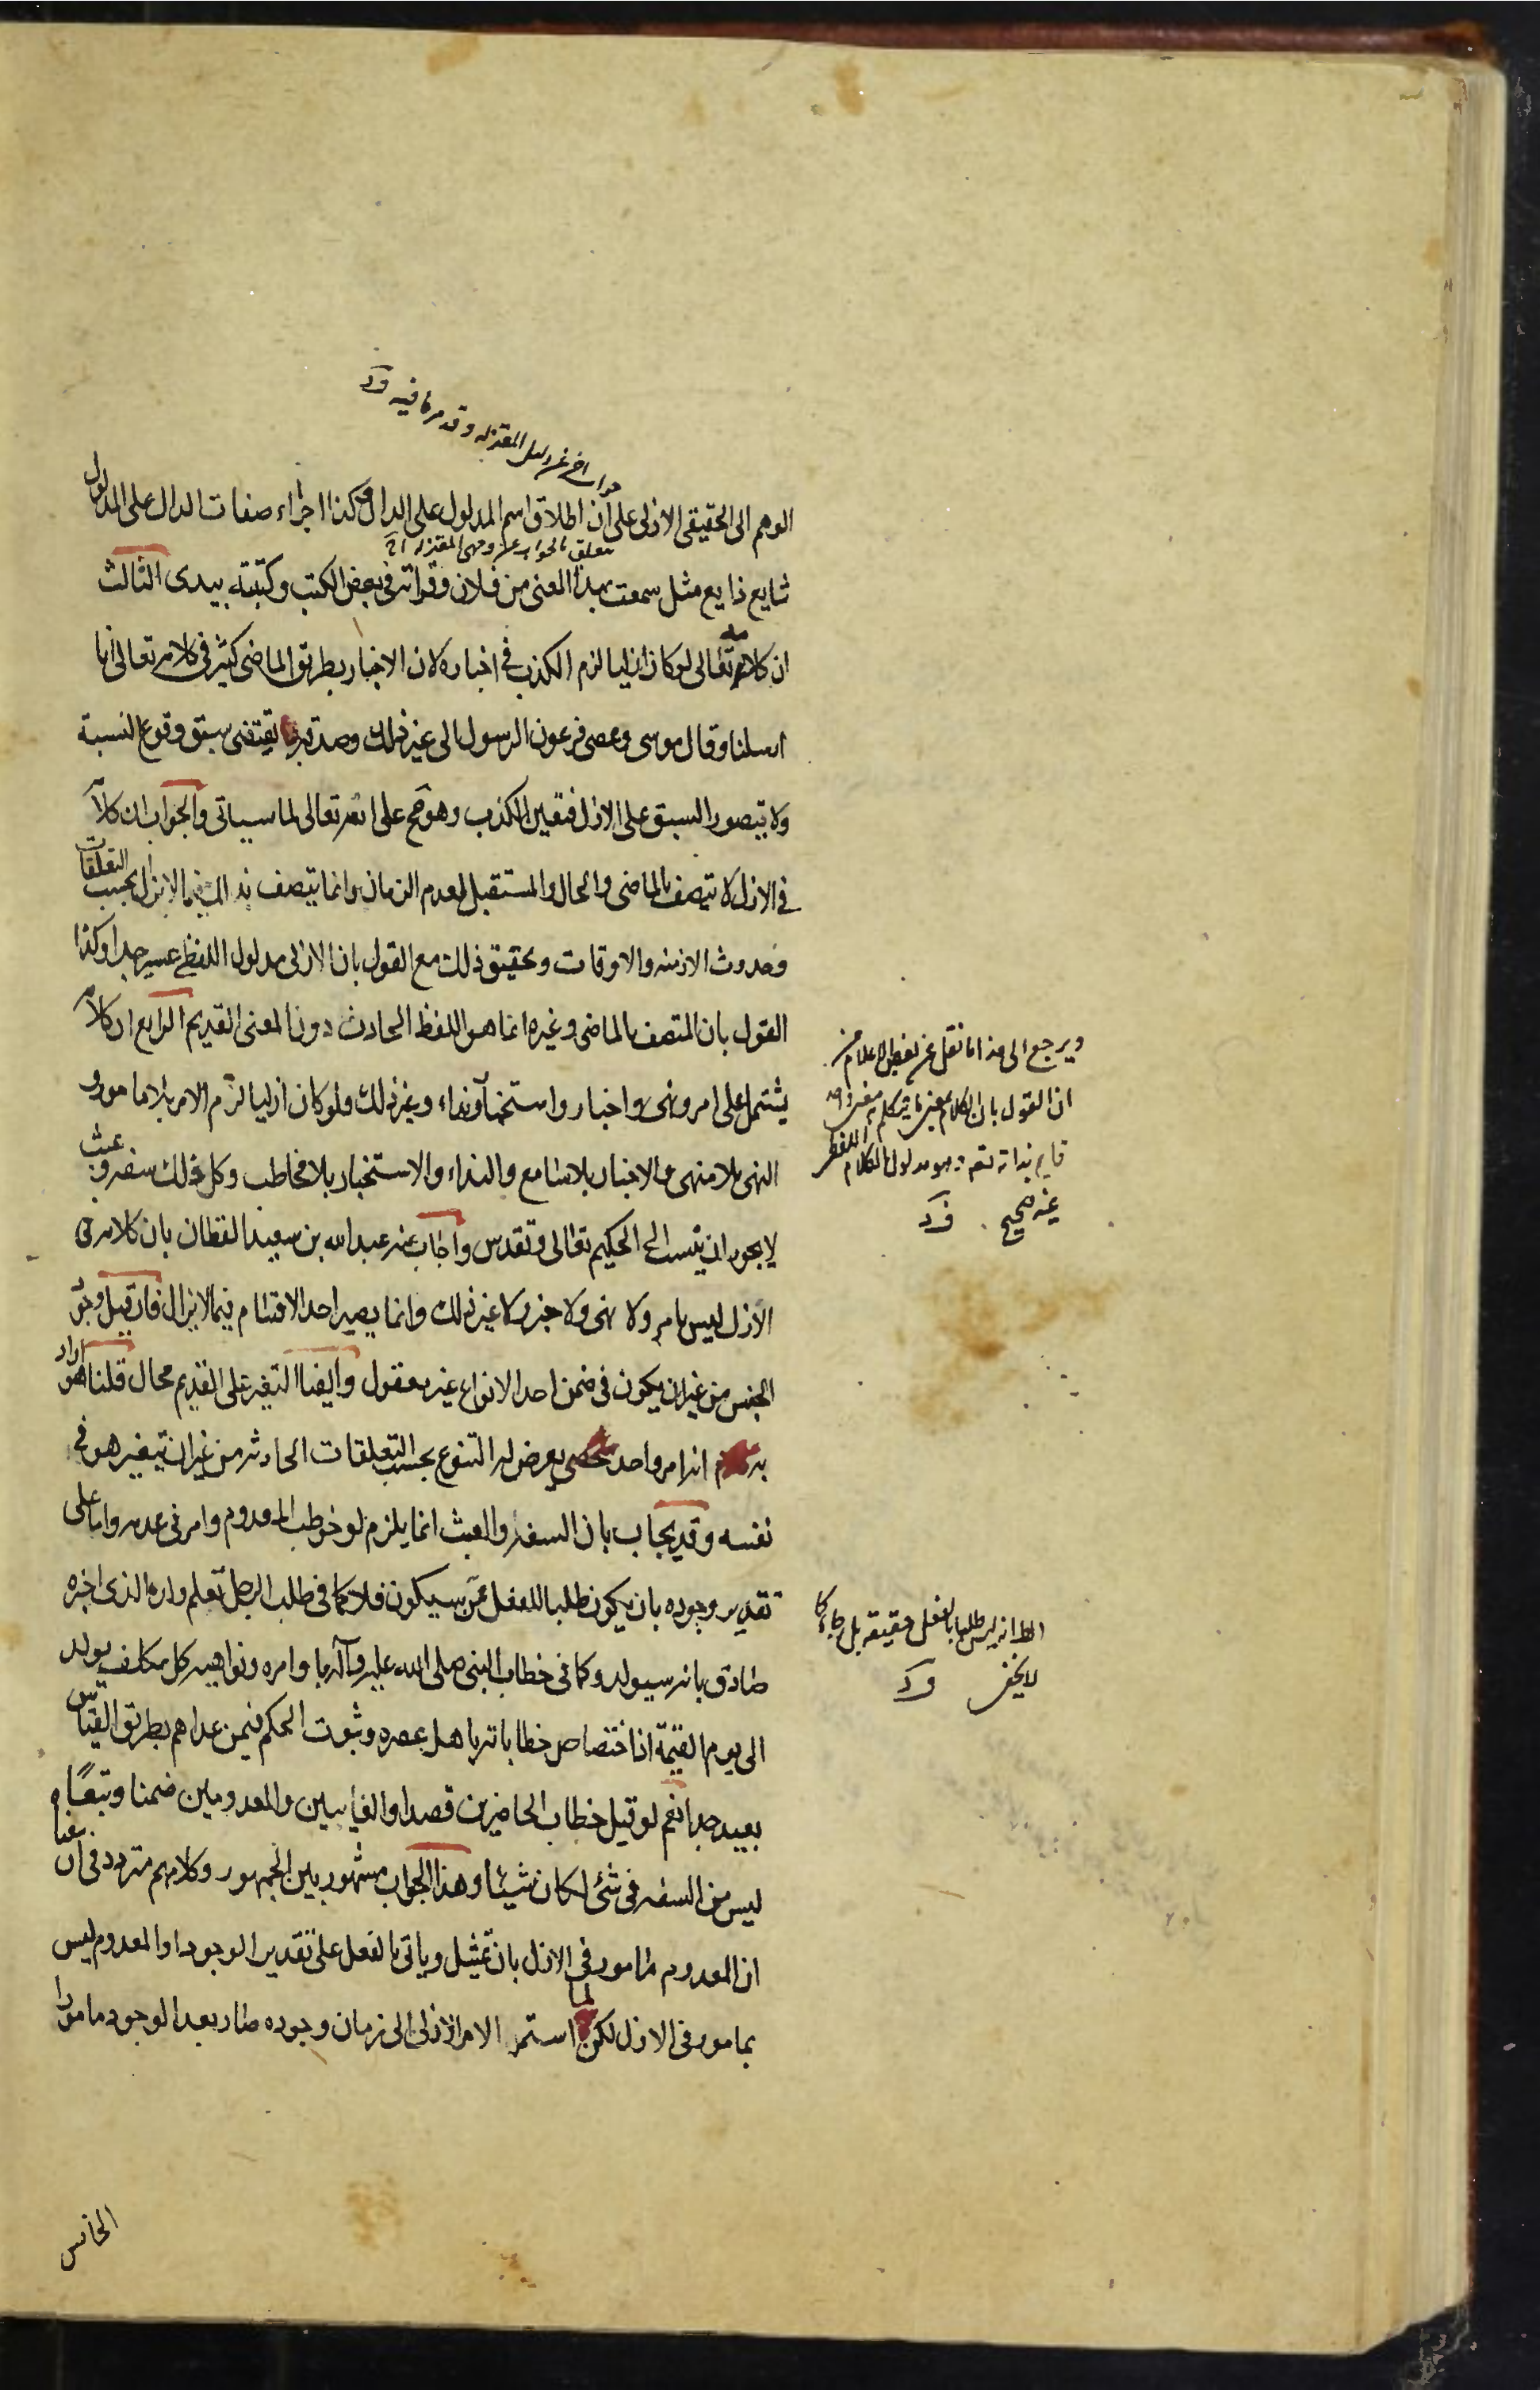 الوهم الى الحقيقى الازلى على ان اطلاق اسم المدلول على الدال وكذا اجراء صفات الدال على المدلول
شايع ذايع مثل سمعت هذا المعنى من فلان وقرأته فى بعض الكتب وكتبته بيدى الثالث
ان كلامه تعالى لو كان ازليا لزم الكذب فى اخباره لان الاخبار بطريق الماضى كثير فى كلامه تعالى انا
ارسلنا وقال موسى وعصى فرعون الرسول الى غير ذلك وصدقه يقتضى سبق وقوع النسبة
ولا يتصور السبق على الازل فتعين الكذب وهو مح على الله تعالى لما سياتى والجواب ان كلامه
فى الازل لا يتصف بالماضى والحال والمستقبل لعدم الزمان وانما يتصف بذلك فيما لا يزال بحسب التعلقات
وحدوث الازمنه والاوقات وتحقيق ذلك مع القول بان الازلى مدلول اللفظى عسير جدا وكذا
القول بان المتصف بالماضى وغيره انما هو اللفظ الحادث دون المعنى القديم الرابع ان كلامه
يشتمل على امر ونهى واخبار واستخبار ونداء وغير ذلك ولو كان ازليا لزم الامر بلا مامور و
النهى بلا منهى والاخبار بلا سامع والنداء والاستخبار بلا مخاطب وكل ذلك سفه وعبث
لا يجوز ان ينسب الى الحكيم تعالى وتقدس واجاب عنه عبد الله بن سعيد القطان بان كلامه فى
الازل ليس بامر ولا نهى ولا خبر ولا غير ذلك وانما يصير احد الاقسام فيما لا يزال فان قيل وجود
الجنس من غير ان يكون فى ضمن احد الانواع غير معقول وايضا التغير على القديم محال قلنا هو اراد
به انه امر واحد شخصى يعرض له التنوع بحسب التعلقات الحادثه من غير ان يتغير هو فى
نفسه وقد يجاب بان السفه والعبث انما يلزم لو خوطب المعدوم وامر فى عدمه واما على
تقدير وجوده بان يكون طلبا للفعل عمن سيكون فلا كما فى طلب الرجل تعلم ولده الذى اخبره
صادق بانه سيولد وكما فى خطاب النبى صلى الله عليه وآله باوامره ونواهيه كل مكلف يولد
الى يوم القيمة اذ اختصاص خطاباته باهل عصره وثبوت الحكم فيمن عداهم بطريق القياس
بعيد جدا نعم لو قيل خطاب الحاضرين قصدا والغايبين والمعدومين ضمنا وتبعا
ليس من السفه فى شئ لكان شيئا وهذا الجواب مشهور بين الجمهور وكلامهم متردد فى ان معناه
ان المعدوم مامور فى الازل بان يمتثل وياتى بالفعل على تقدير الوجود او المعدوم ليس
بمامور فى الازل لكن لما استمر الامر الازلى الى زمان وجوده صار بعد الوجود مامورا
ويرجع الى هذا ما نقل عن بعض الاعلام من
ان القول بان الكلام
قايم بذاته تعم وهو مدلول الكلام اللفظى
غير صحيح
لا يخفى
الخامس